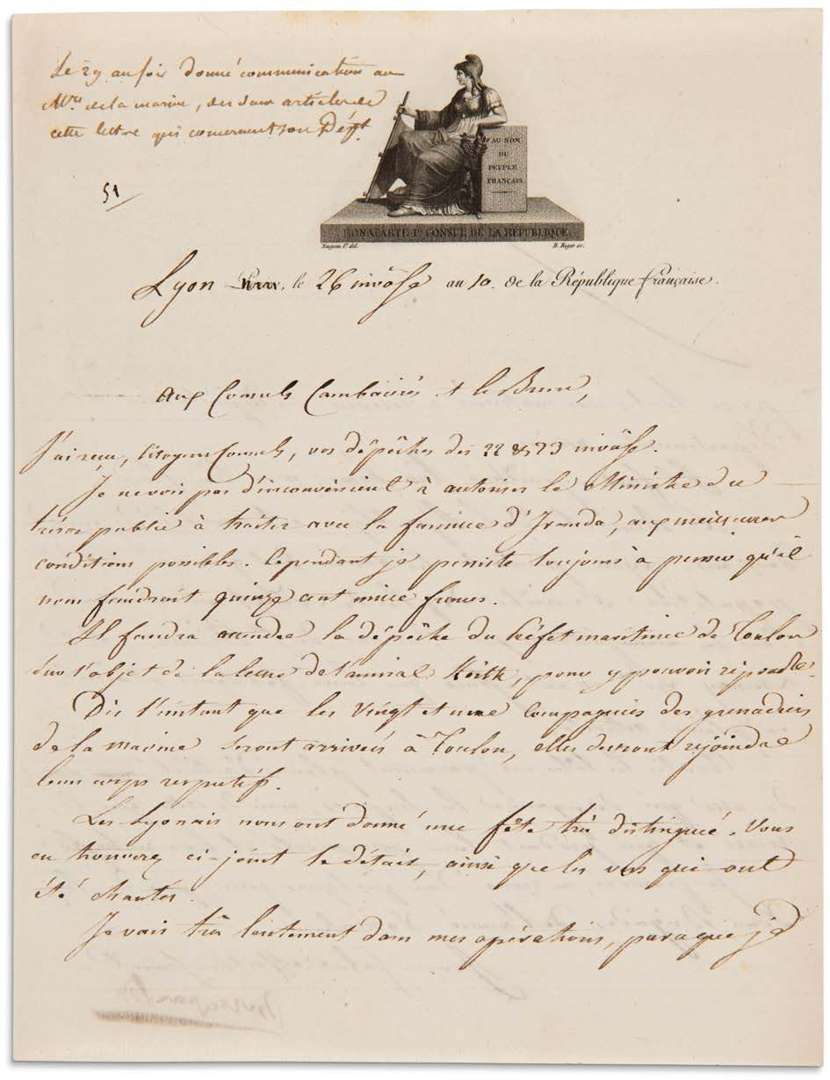 Le 29 au soir donné communication au
Mre de la marine, des deux articles de
cette lettre qui concernent son Dépt.
51
AU NOM
DU
PEUPLE
FRANÇAIS.
BONAPARTE Ier CONSUL DE LA RÉPUBLIQUE.
B. Roger sc.
Lyon Paris, le 26 nivôse an 10. de la République française.
Aux Consuls Cambacérès et le Brun,
J'ai reçu, Citoyens Consuls, vos dépêches des 22 & 23 nivôse.
Je ne vois pas d'inconvénient à autoriser le Ministre du
trésor public à traiter avec la fammille d'Iranda, aux meilleures
conditions possibles. Cependant je persiste toujours à penser qu'il
nous faudroit quinze cent mille francs.
Il faudra attendre la dépêche du Préfet maritime de Toulon
sur l'objet de la lettre de l'amiral Keith, pour y pouvoir répondre.
Dès l'instant que les vingt et une Compagnies des grenadiers
de la marine seront arrivées à Toulon, elles devront rejoindre
leurs corps respectifs.
Les Lyonais nous ont donné une fête très distinguée. Vous
en trouverez ci-joint le détail, ainsi que les vers qui ont
été chantés.
Je vais très lentement dans mes opérations, parce que je